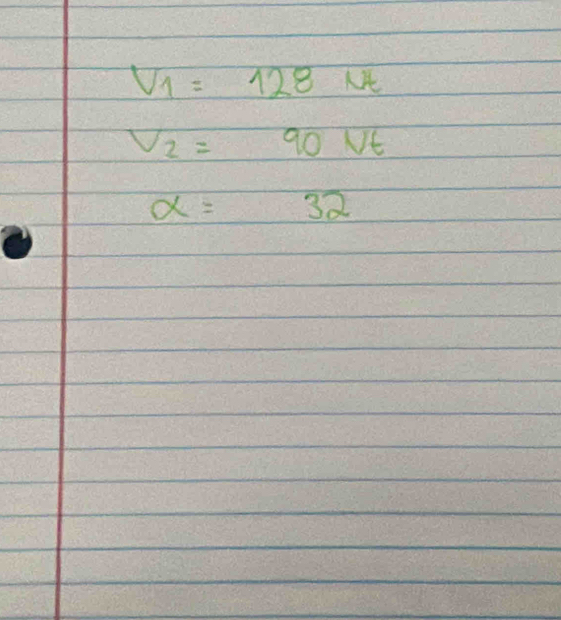 V1 = 128 Nt
V2 = 90 Nt
α = 32